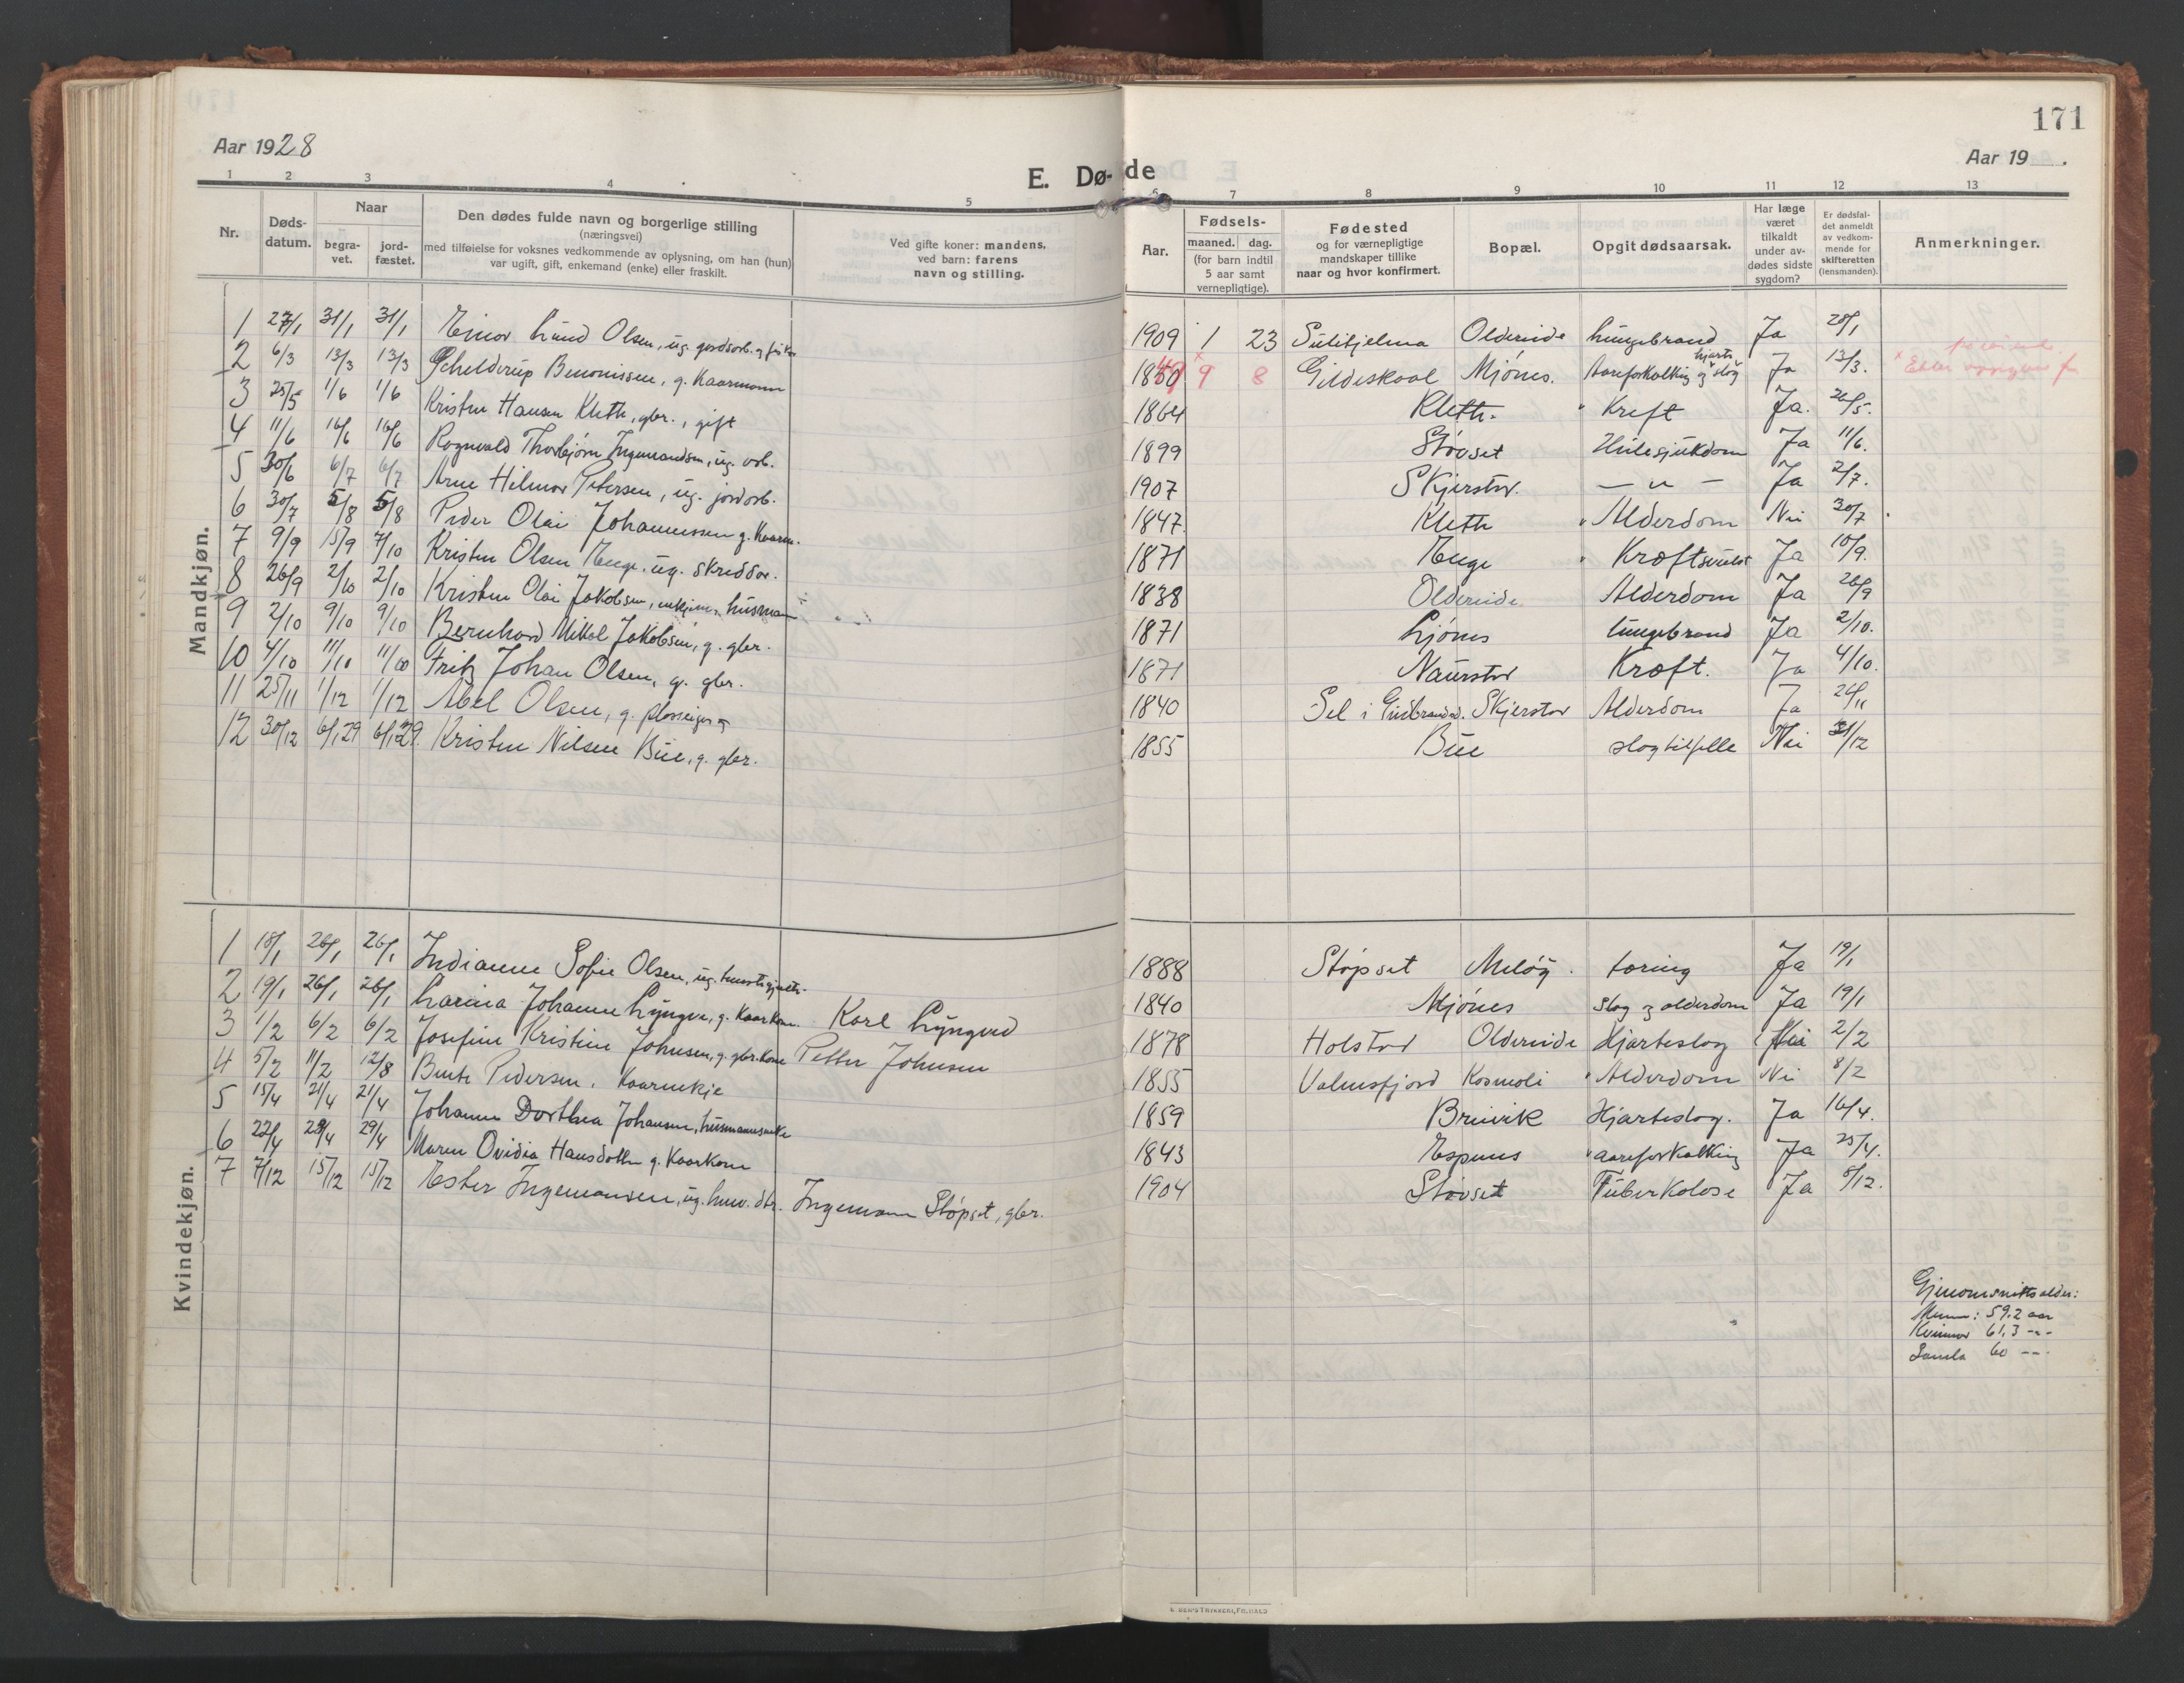 171
Aar 1928
Aar 19 .
E. Dø-de
1 2 3 4 5 6 7 8 9 10 11 12 13
Nr.
Døds-datum.
Naar
begra-vet.
jord-fæstet.
Den dødes fulde navn og borgerlige stilling
(næringsvei)
med tilføielse for voksnes vedkommende av oplysning, om han (hun)
var ugift, gift, enkemand (enke) eller fraskilt.
Ved gifte koner: mandens,
ved barn: farens
navn og stilling.
Aar.
Fødsels-
maaned. dag.
(for barn indtil
5 aar samt
vernepligtige).
Fødested
og for værnepligtige
mandskaper tillike
naar og hvor konfirmert.
Bopæl.
Opgit dødsaarsak.
Har læge
været
tilkaldt
under av-
dødes sidste
sygdom?
Er dødsfal-
det anmeldt
av vedkom-
mende for
skifteretten
(lensmanden).
Anmerkninger.
Mandkjøn.
1 27/1 31/1 31/1 Einar Lund Olsen, ug. gardsarb. og fisker 1909 1 23 Sulitjelma Oldereide Lungebrand Ja 28/1
2 6/3 13/3 13/3 Schelderup Benonissen, g. Kaarmann 18 9 8 Gildeskaal Mjónes. Aareforkalking og hjarteslag Ja 13/3.
3 25/5 1/6 1/6 Kristen Hansen Kleth, gbr., gift 1864 Kleth. Kreft Ja. 26/5.
4 11/6 16/6 16/6 Rognvald Thorbjørn Ingemandsen, ug. arb. 1899 Stóvset Hulesjukdom Ja 11/6.
5 30/6 6/7 6/7 Arne Hilmar Petersen, ug. jordarb. 1907 Skjerstad. — " — Ja 2/7.
6 30/7 5/8 5/8 Peder Olai Johannessen g. Kaarm. 1847 Kleth Alderdom Nei 30/7
7 9/9 15/9 7/10 Kristen Olsen Enge. ug. skreddar. 1871 Enge Kræftsvulst Ja 10/9.
8 26/9 2/10 2/10 Kristen Olai Jakobsen, enkjem. husmann 1838 Oldereide Alderdom Ja 26/9
9 2/10 9/10 9/10 Bernhard Mikal Jakobsen, g. gbr. 1871 Ljónes Lungebrand Ja 2/10.
10 4/10 11/10 11/10 Fritz Johan Olsen, g. gbr. 1871 Naurstad Kræft. Ja 4/10.
11 25/11 1/12 1/12 Abel Olsen, g. 1840 Sel i Gudbrandsd. Skjerstad Alderdom Ja 26/11
12 30/12 6/1 29 6/1 29. Kristen Nilsen Bue, g. gbr. 1855 Bue slagtilfelle Nei 31/12
Kvindekjøn.
1 18/1 26/1 26/1 Indianne Sofie Olsen, ug. 1888 Stópset Meløy. tæring Ja 19/1
2 19/1 26/1 26/1 Larina Johanne Lyngve, g. Kaarkone. Karl Lyngved 1840 Mjónes Slag og alderdom Ja 19/1
3 1/2 6/2 6/2 Josefine Kristine Johnsen, g. gbr.kone Petter Johnsen 1878 Holstad Oldereide Hjarteslag Nei 2/2
4 5/2 11/2 12/8 Berte Pedersen. Kaarenkje 1855 Valnesfjord Kosmoli Alderdom Nei 8/2
5 15/4 21/4 21/4 Johanne Dorthea Johansen, husmannsenke 1859 Breivik Hjarteslag. Ja 16/4.
6 22/4 29/4 29/4 Maren Ovidia Hansdotter g. Kaarkone 1843 Espenes aareforkalking Ja 25/4.
7 7/12 15/12 15/12 Ester Ingemansen, ug. husm. dtr. Ingemann Stópset, gbr. 1904 Stóvset Tuberkolose Ja 8/12.
Gjenomsnittsalder:
Menn: 59.2 aar
Kvinnor 61,3 -"-
Samla 60 -"-